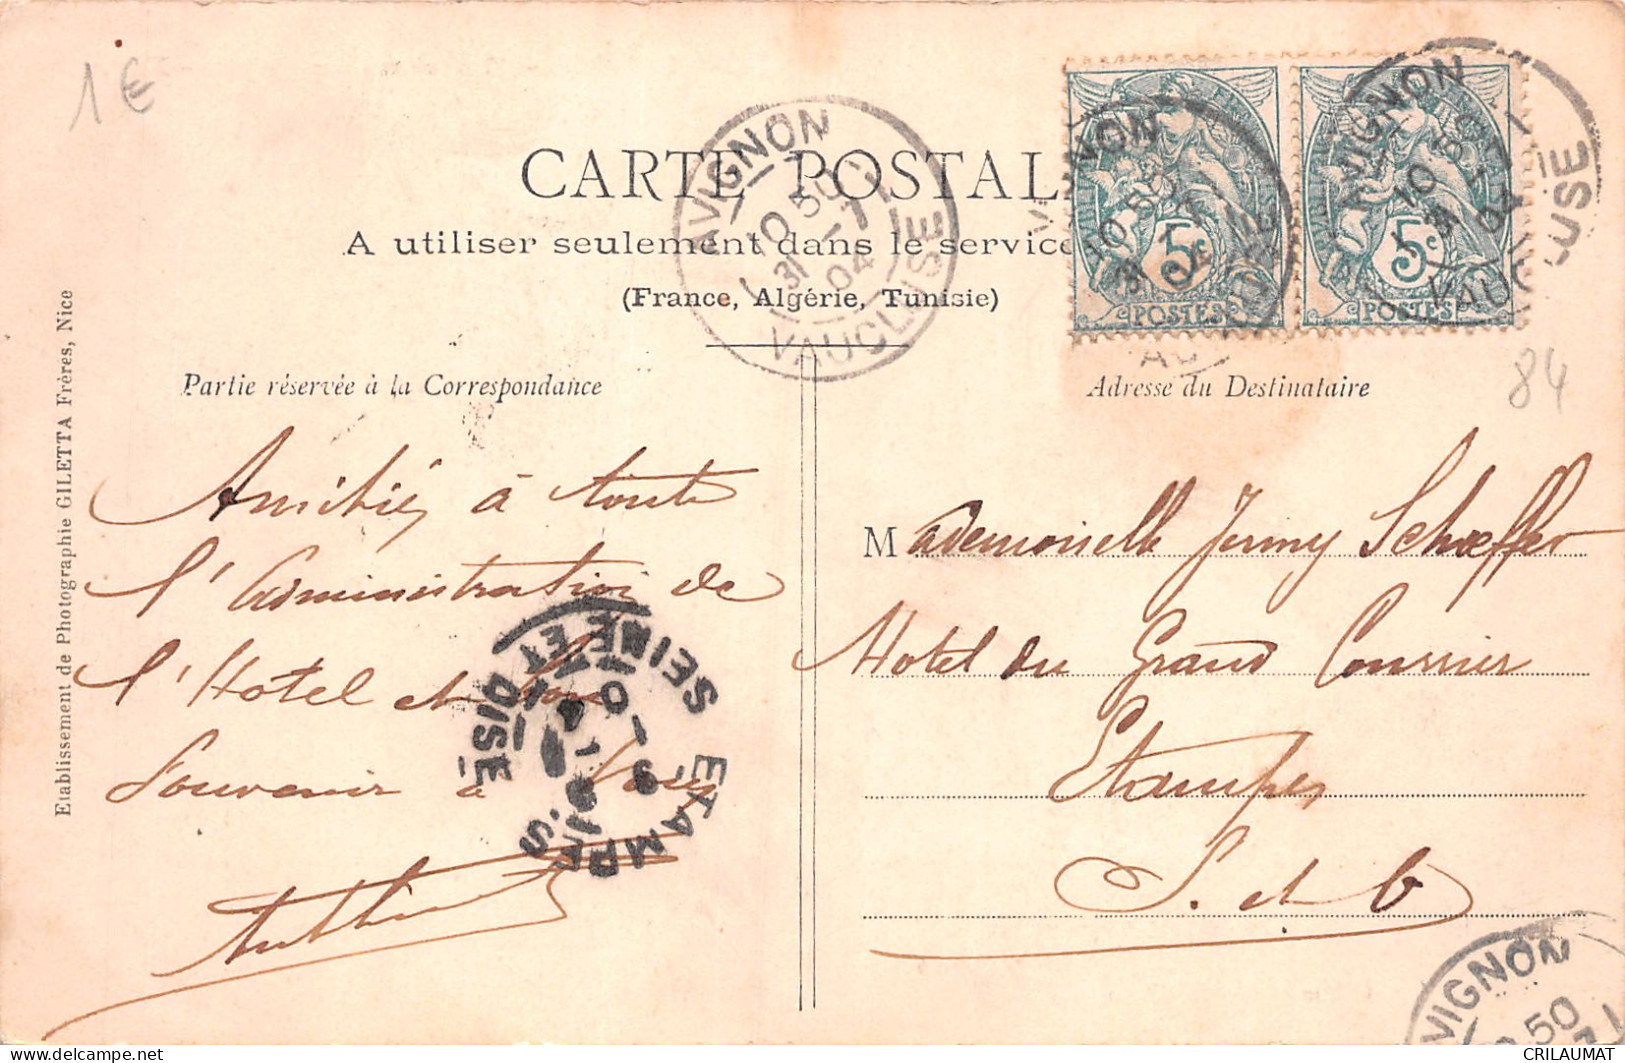 1€
CARTE POSTAL
A utiliser seulement dans le service
(France, Algérie, Tunisie)
AVIGNON
10 50
31 -7
04
VAUCLUSE
5c
POSTES
5c
POSTES
AVIGNON
VAUCLUSE
84
Partie réservée à la Correspondance
Adresse du Destinataire
Amitiés à toute
l'administration de
l'Hotel et bon
Souvenir à Vous
Mademoiselle Jenny Schoeffer
Hotel du Grand Courrier
Etampes
S. et O
ETAMPES
SEINE ET OISE
AVIGNON
50
Etablissement de Photographie GILETTA Frères, Nice
delcampe.net
CRILAUMAT